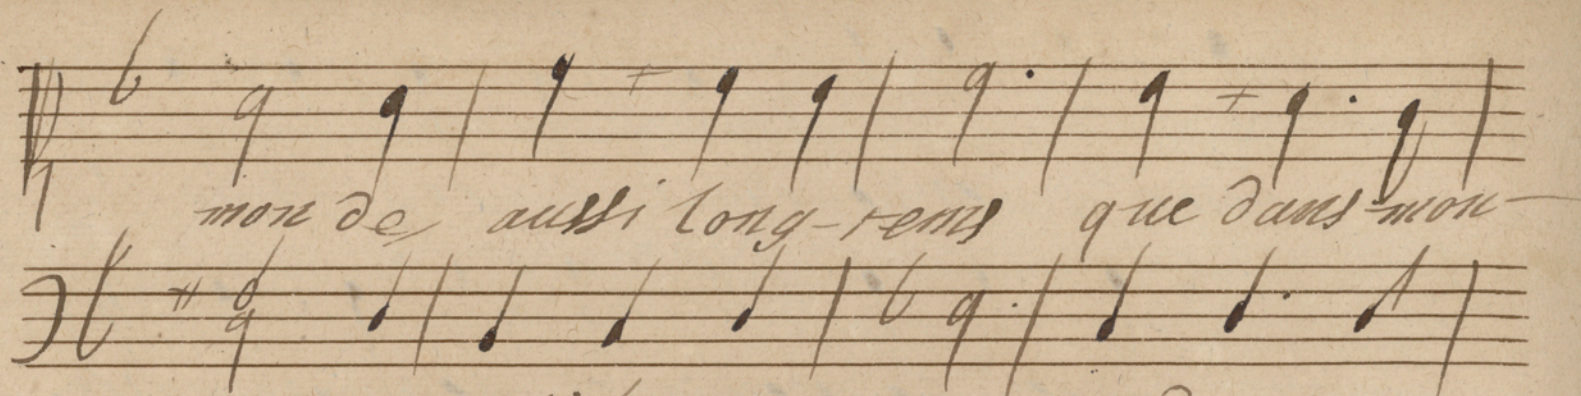 monde, aussi long-tems que dans mon-